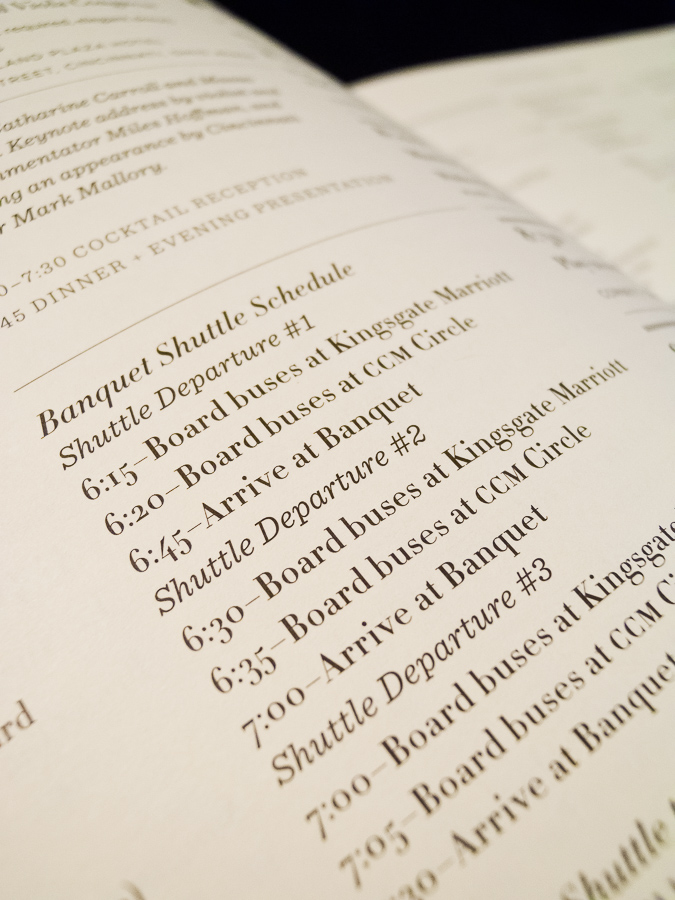 LAND PLAZA HOTEL
STREET, CINCINNATI,
atharine Carroll and
Keynote address by
mmentator Miles Hoffman, and
ng an appearance by Cincinnati
r Mark Mallory.
0–7:30 COCKTAIL RECEPTION
45 DINNER + EVENING PRESENTATION
Banquet Shuttle Schedule
Shuttle Departure #1
6:15–Board buses at Kingsgate Marriott
6:20–Board buses at CCM Circle
6:45–Arrive at Banquet
Shuttle Departure #2
6:30–Board buses at Kingsgate Marriott
6:35–Board buses at CCM Circle
7:00–Arrive at Banquet
Shuttle Departure #3
7:00–Board buses at Kingsgate
7:05–Board buses at CCM C
:30–Arrive at Banquet
Shuttle
rd